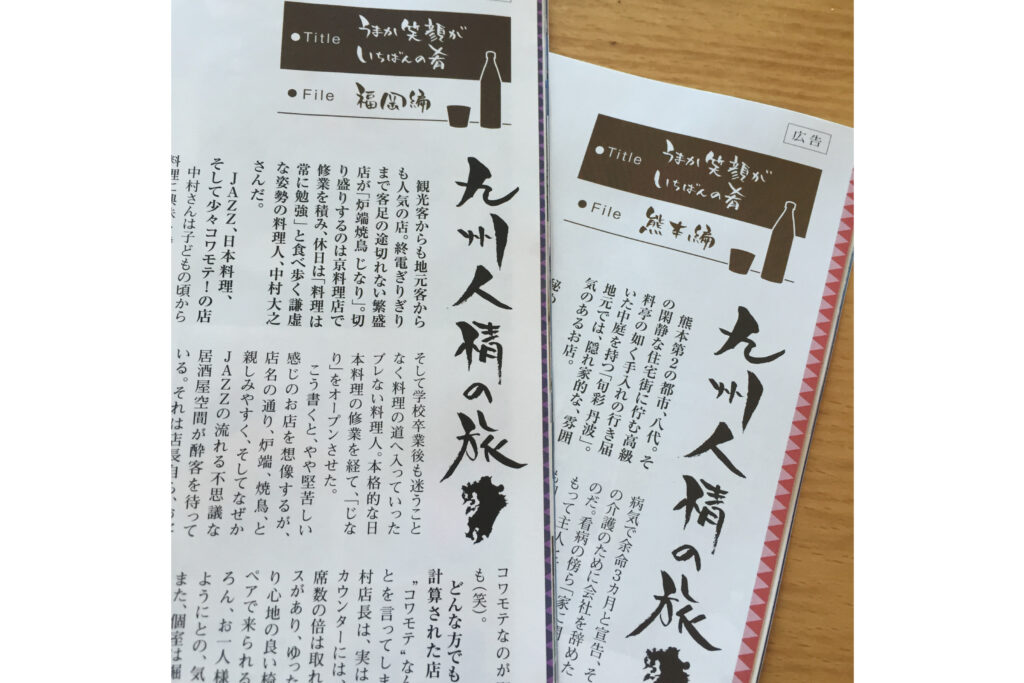 ●Title うまか笑顔が
いちばんの肴
●File 福岡編
九州人情の旅
観光客からも地元客から
も人気の店。終電ぎりぎり
まで客足の途切れない繁盛
店が「炉端焼鳥 じなり」。切
り盛りするのは京料理店で
修業を積み、休日は「料理は
常に勉強」と食べ歩く謙虚
な姿勢の料理人、中村大之
さんだ。
JAZZ、日本料理、
そして少々コワモテ！の店
中村さんは子どもの頃から
そして学校卒業後も迷うこと
なく料理の道へ入っていった
ブレない料理人。本格的な日
本料理の修業を経て、「じな
り」をオープンさせた。
こう書くと、やや堅苦しい
感じのお店を想像するが、
店名の通り、炉端、焼鳥、と
親しみやすく、そしてなぜか
JAZZの流れる不思議な
居酒屋空間が酔客を待って
いる。それは店長自ら、
コワモテなのが
も（笑）。
どんな方でも
計算された店
“コワモテ”な
とを言ってしま
村店長は、実は
カウンターには、
席数の倍は取れ
スがあり、ゆった
り心地の良い椅
ペアで来られる
ろん、お一人様
ようにとの、気
また、個室は掘
広告
●Title うまか笑顔が
いちばんの肴
●File 熊本編
九州人情の旅
熊本第2の都市、八代。そ
の閑静な住宅街に佇む高級
料亭の如く手入れの行き届
いた中庭を持つ「旬彩 丹波」。
地元では、隠れ家的な、雰囲
気のあるお店。
病気で余命3カ月と宣告、そ
の介護のために会社を辞めた
のだ。看病の傍ら「家に閉
もって主人と